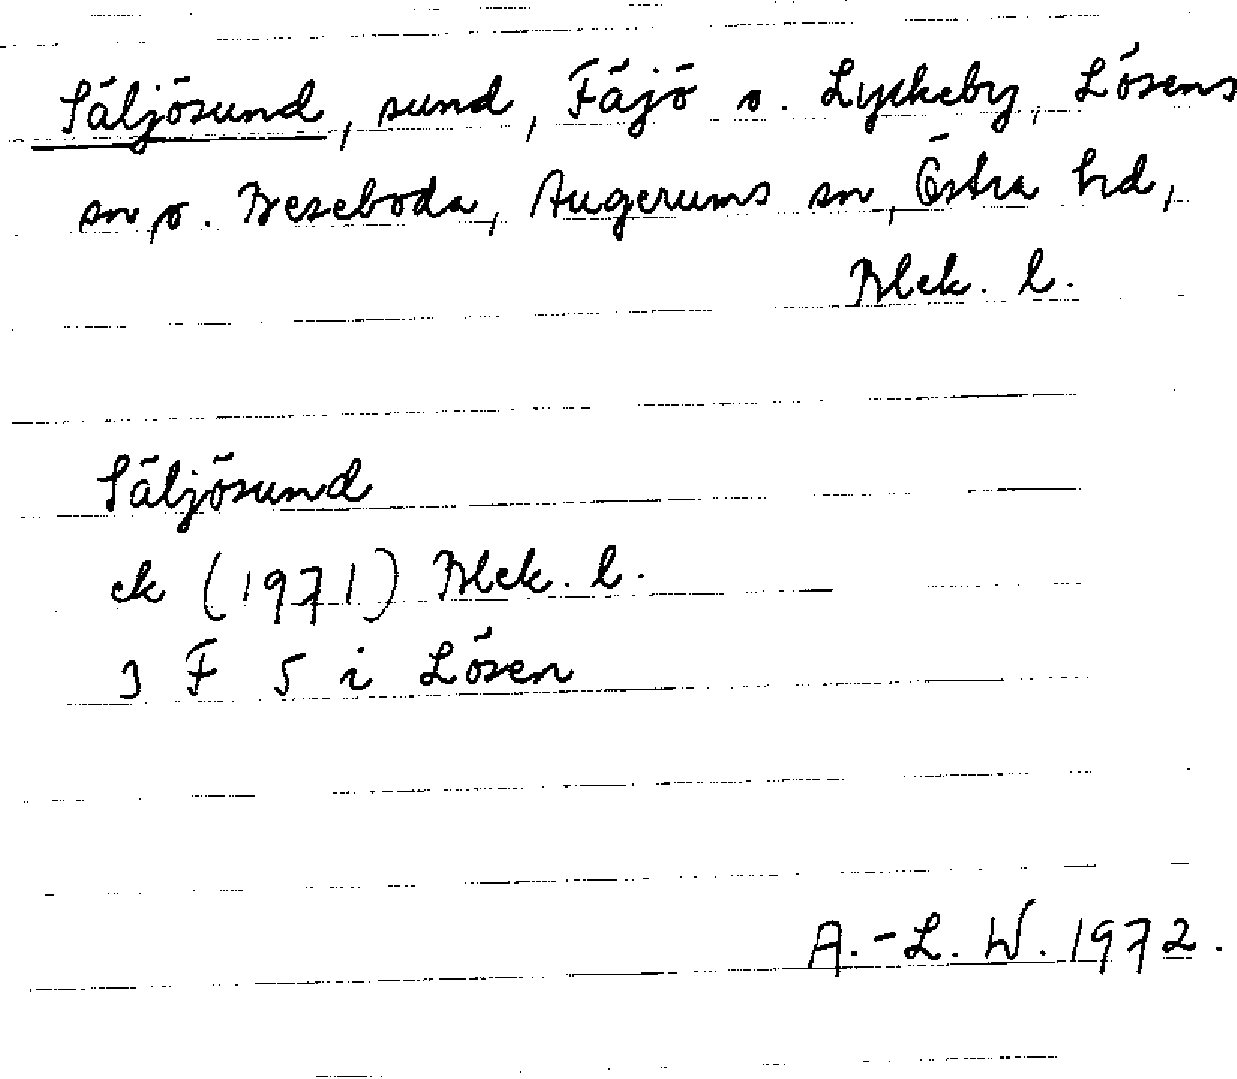 Säljösund, sund, Fäjö o. Lyckeby, Lösens
sn, o. Bezeboda, Augerums sn, Östra hd,
Blek. l.
Säljösund
ek (1971) Blek. l.
3 F 5 i Lösen
A.-L. W. 1972.